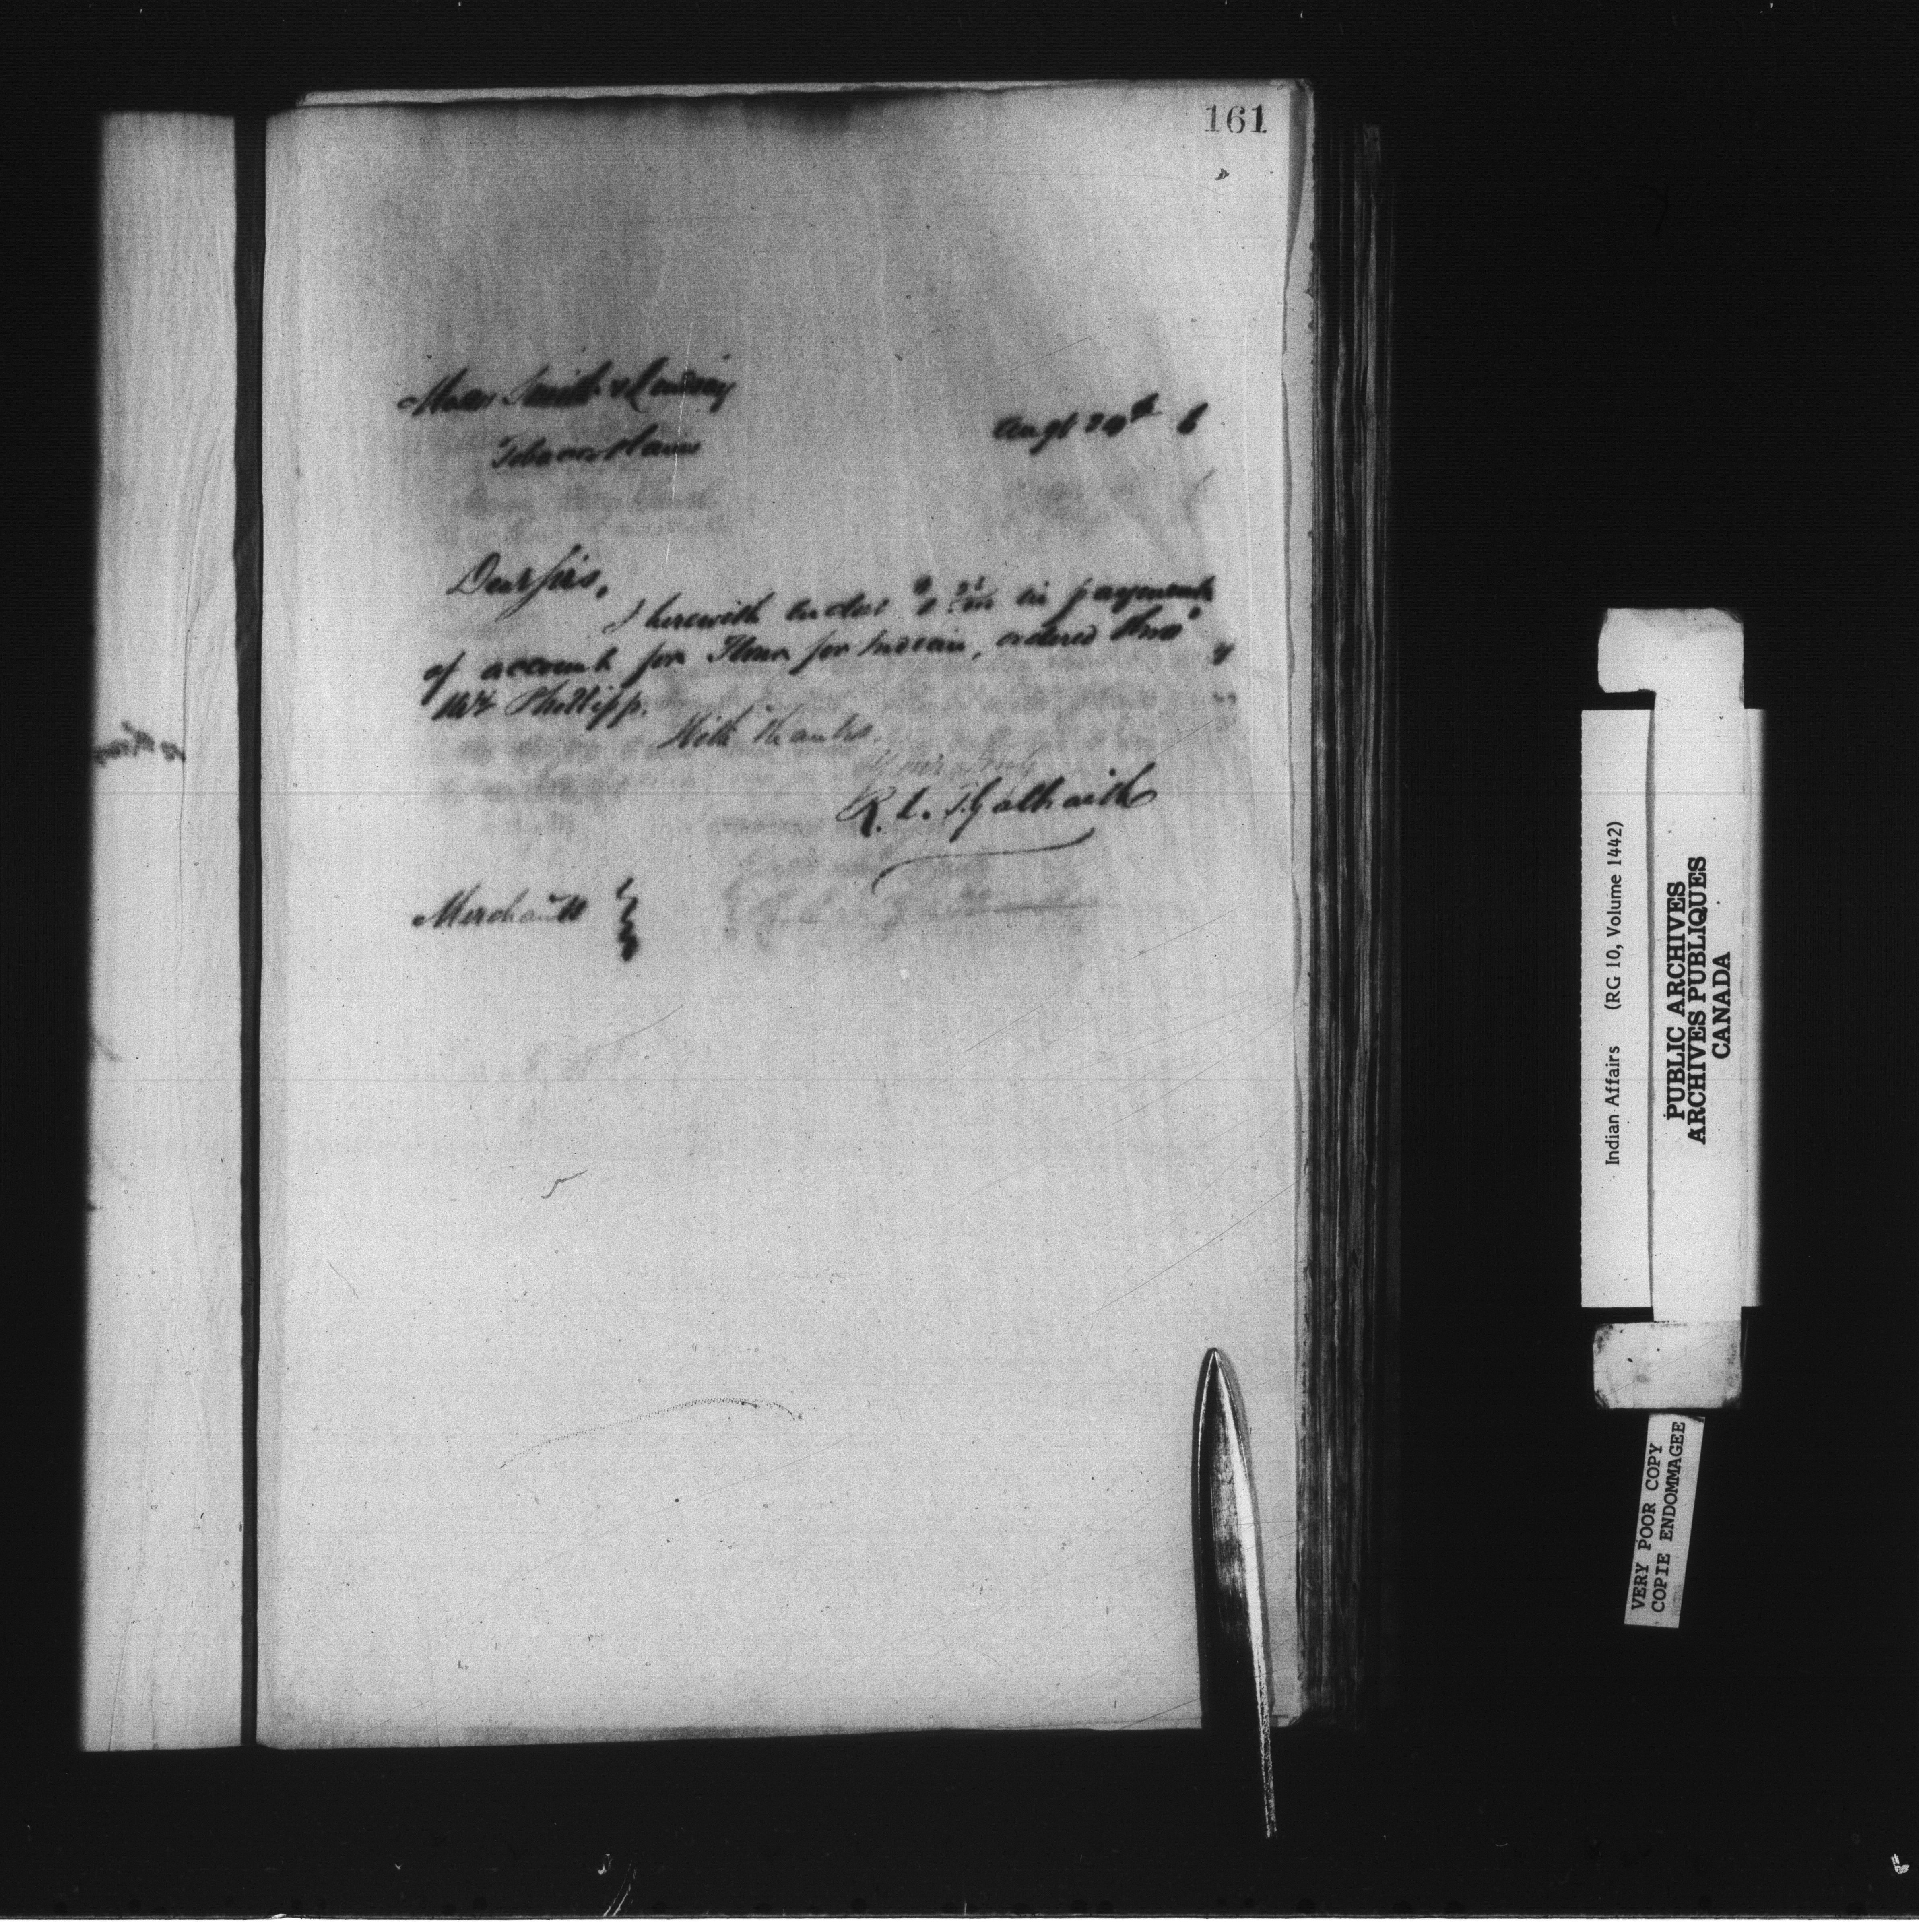 161
Messrs Smith & Lindsay
Tobacco Plains
Augt 29th 6
Dear Sirs,
I herewith enclose in payment
of account for Flour for Indian, ordered thro'
Mr Phillipps.
With thanks.
Yours truly
R. L. T. Galbraith
Merchants
Indian Affairs (RG 10, Volume 1442)
PUBLIC ARCHIVES
ARCHIVES PUBLIQUES
CANADA
VERY POOR COPY
COPIE ENDOMMAGEE